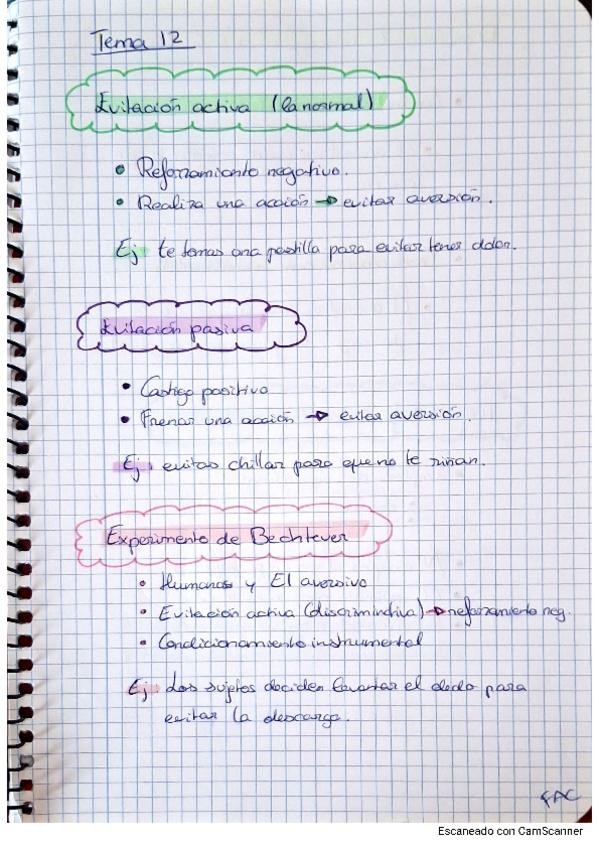 Tema 12
Evitación activa (la normal)
• Reforzamiento negativo.
• Realiza una acción → evitar aversión.
Ej: te tomas una pastilla para evitar tener dolor.
Evitación pasiva
• Castigo positivo
• Frenar una acción → evitar aversión.
Ej: evitas chillar para que no te riñan.
Experimento de Bechterev
• Humanos y EI aversivo
• Evitación activa (discriminativa) → reforzamiento neg.
• Condicionamiento instrumental
Ej: Los sujetos deciden levantar el dedo para
evitar la descarga.
FAC
Escaneado con CamScanner